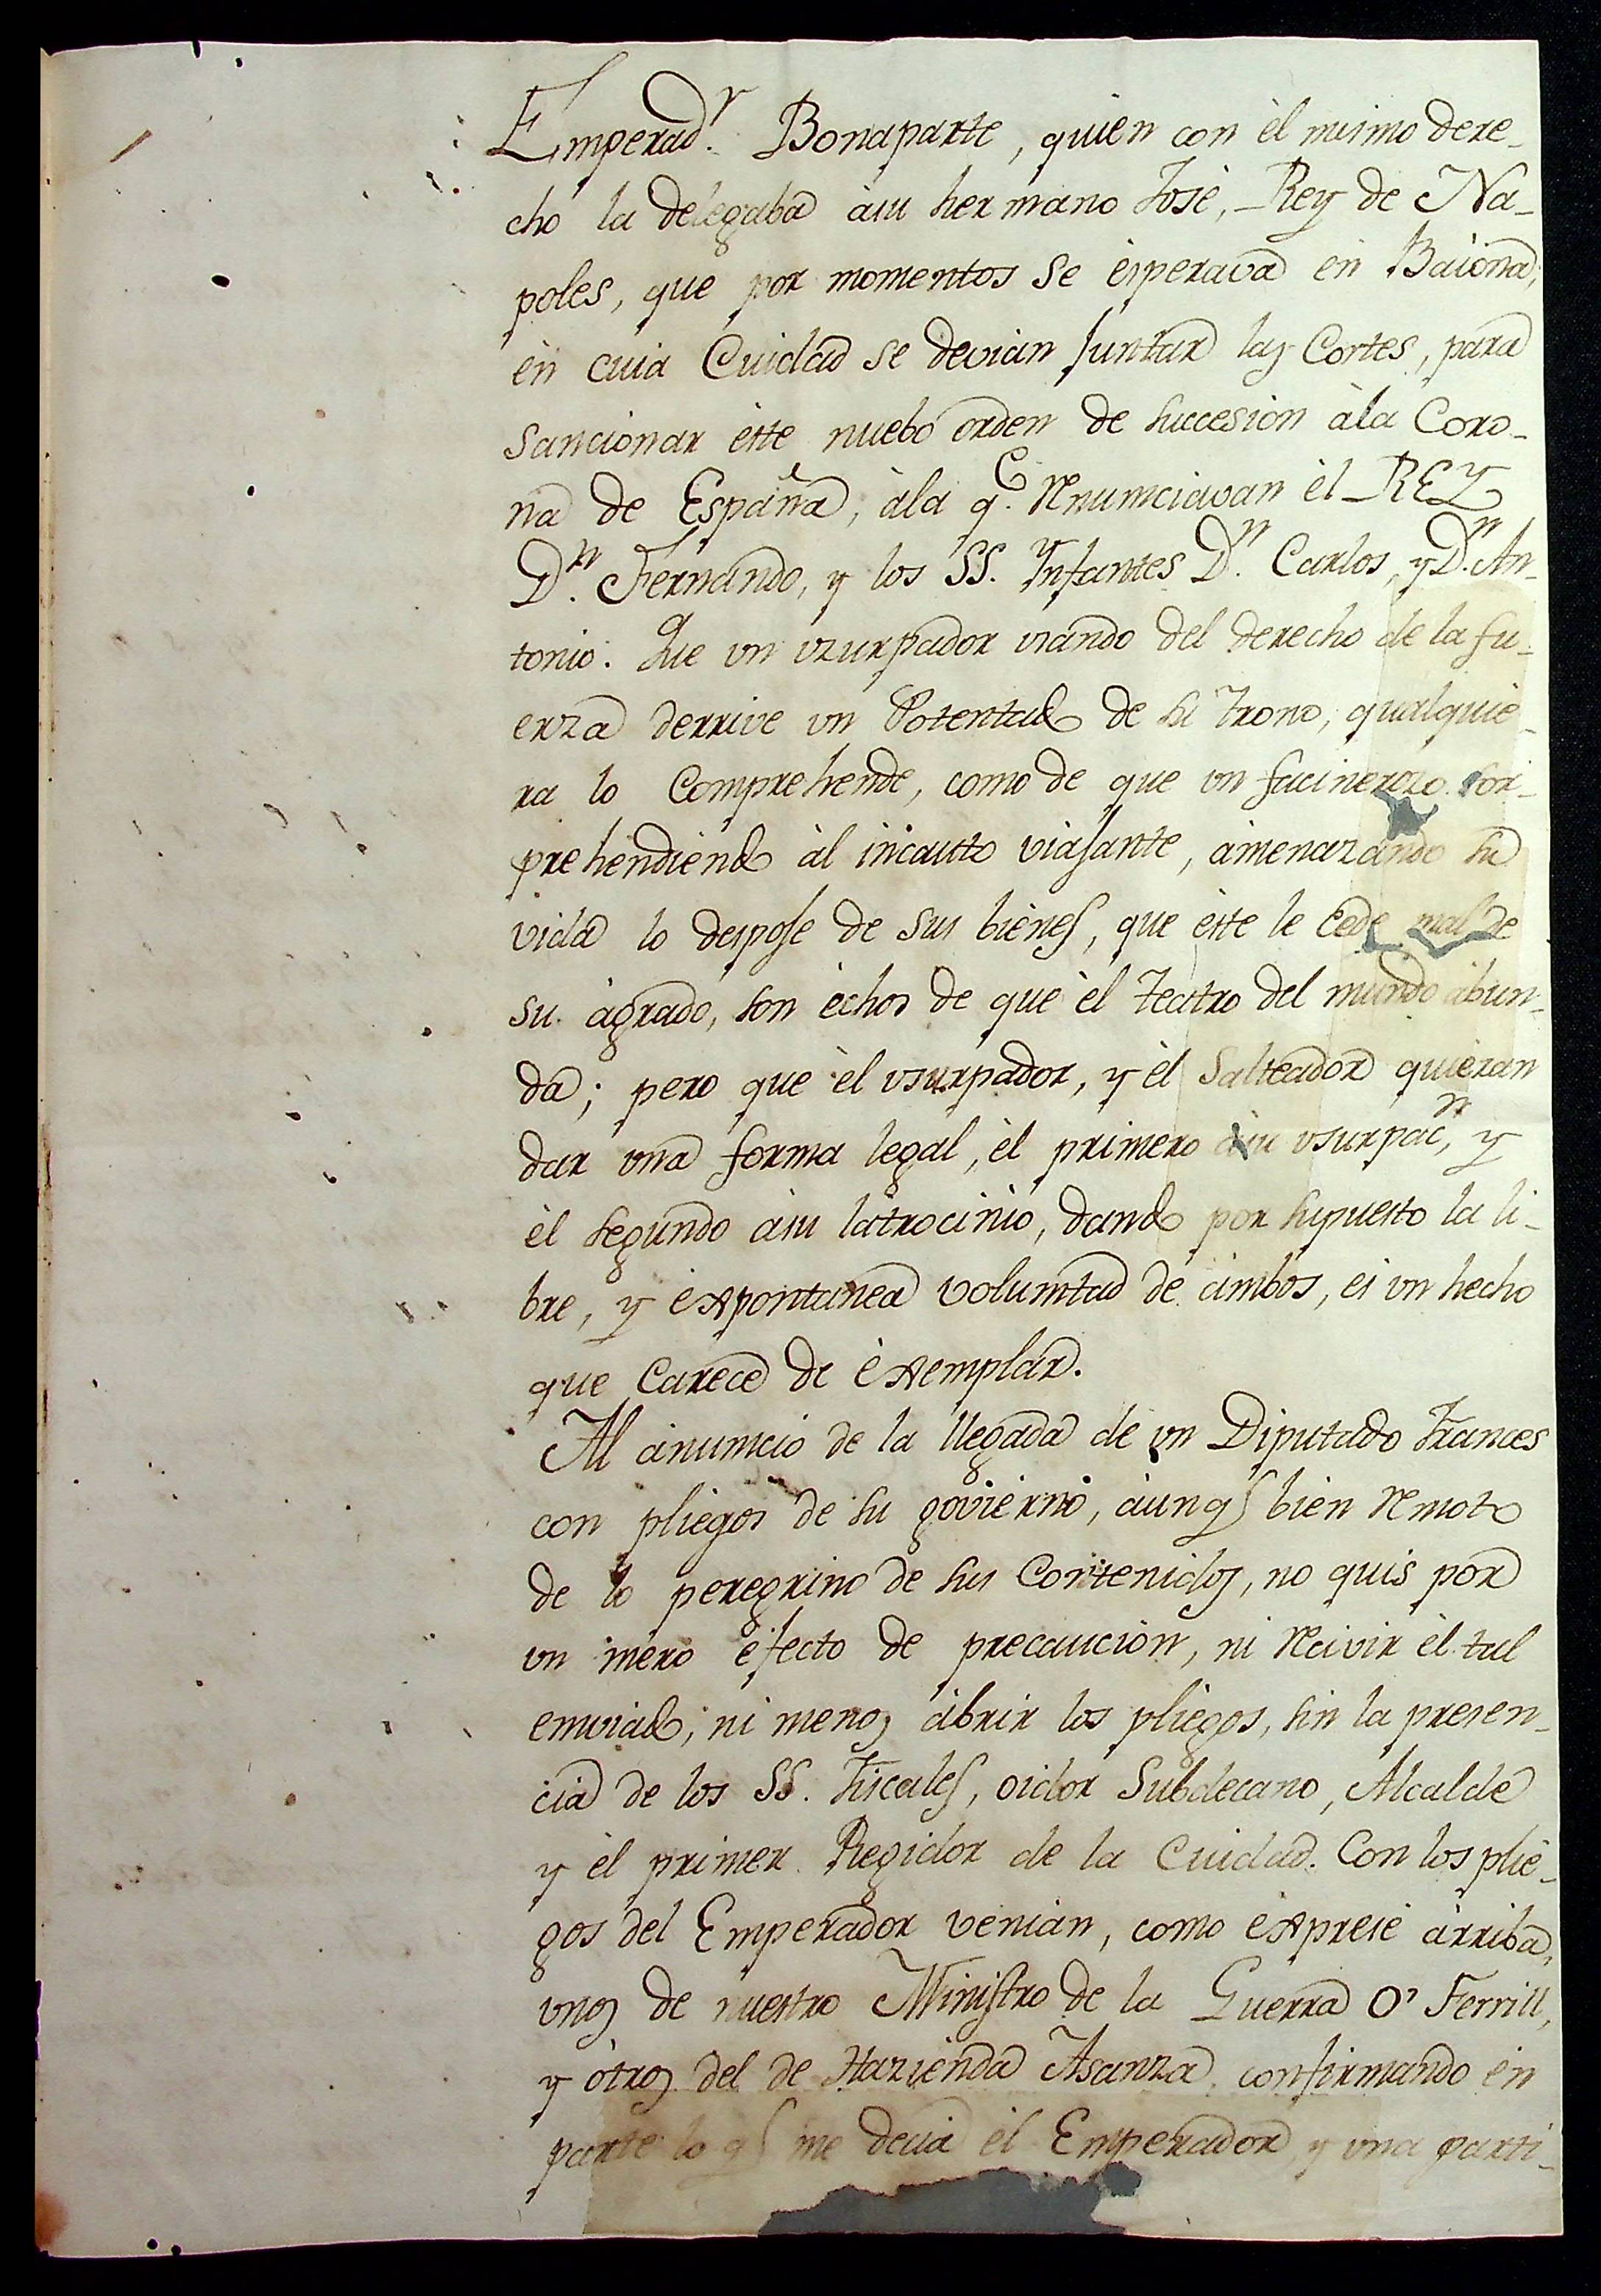 Emperad.r Bonaparte, quien con èl mismo dere-
cho la delegaba àsu hermano José, Rey de Na-
poles, que por momentos se èsperava èn Baiona,
èn cuia Cuidad se devian juntar las Cortes, para
sancionar èste nuebo orden de succesion àla Coro-
na de España, àla q.e renunciavan èl REY
D.n Fernando, y los SS. Ynfantes D.n Carlos, y D.n An-
tonio. Que un vzurpador vsando del derecho de la fu-
erza derrive un Potentado de su trono, qualquie-
ra lo Comprehende, como de que un facinerozo sor-
prehendiendo àl incauto viajante, àmenazando su
vida lo despoje de sus biènes, que èste le Cede mal de
su àgrado, son èchos de que èl teatro del mundo àbun-
da; pero que èl vsurpador, y èl Salteador quièran
dar vna forma legal, èl primero àsu vsurpac.n, y
èl segundo àsu latrocinio, dando por supuesto la li-
bre, y èxpontanea volumtad de àmbos, es vn hecho
que Carece de èxemplar.
Al ànumcio de la llegada de vn Diputado Frances
con pliegos de su govièrno, àunq.e bien remoto
de lo peregrino de sus Contenidos, no quis por
vn mero èfecto de precaucion, ni recivir èl tal
enviado, ni menos àbrir los pliègos, sin la presen-
cia de los SS. Fiscales, oidor Subdecano, Alcalde
y èl primer Regidor de la Cuidad. Con los pliè-
gos del Emperador venian, como èxpresè àrriba,
vnos de nuestro Ministro de la Guerra O' Ferrill,
y òtros del de Hazienda Asanza, confirmando èn
parte lo q.e me decia èl Emperador, y vna parti-